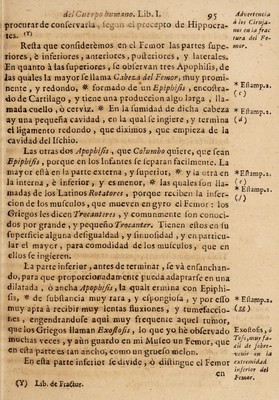 del Cuerpo humano. Lib. I. 95
procurar de conservarla, segun el precepto de Hippocra-
tes. (Y)
Resta que considerèmos en el Femor las partes supe-
riores, è inferiores, anteriores, pulteriores, y laterales.
En quanto à las superiores, se observan tres Apophisis, de
las quales la mayor se llama Cabeza del Femor, muy promi-
nente, y redondo, * formado de un Epiphisis, encostra-
do de Cartilago, y tiene una produccion algo larga, lla-
mada cuello, ò cerviz. * En la sumidad de dicha cabeza
ay una pequeña cavidad, en la qual se ingiere, y termina
el ligamento redondo, que diximos, que empieza de la
cavidad del Ischio.
Las otras dos Apophisis, que Columbo quiere, que sean
Epiphisis, porque en los Infantes se separan facilmente. La
mayor està en la parte externa, y superior, * y la otra en
la interna, è inferior, y es menor, * las quales son lla-
madas de los Latinos Rotatores, porque reciben la inser-
cion de los musculos, que mueven en gyro el Femor: los
Griegos les dicen Trocanteres, y comunmente son conoci-
dos por grande, y pequeño Trocanter. Tienen estos en su
superficie alguna desigualdad, y sinuosidad, y en particu-
lar el mayor, para comodidad de los musculos, que en
ellos se ingieren.
La parte inferior, antes de terminar, se và ensanchan-
do, para que proporcionadamente pueda adaptarse en una
dilatada, ò ancha Apophisis, la qual termina con Epiphi-
sis, * de substancia muy rara, y espongiosa, y por esso
muy apta à recibir muy lentas fluxiones, y tumefaccio-
nes, engendrandose aqui muy frequente aquel tumor,
que los Griegos llaman Exostosis, lo que yo hè observado
muchas veces, y aùn guardo en mi Museo un Femor, que
en esta parte es tan ancho, como un gruesso melon.
En esta parte inferior se divide, ò distingue el Femor
en
(Y) Lib. de Fractur.
Advertencia
à los Ciruja-
nos en la frac
tura del Fe-
mor.
* Estamp. 2.
(c)
* Estamp. 2.
(d)
* Estamp. 2.
(e)
* Estamp. 2.
(f)
* Estamp. 2.
(gg)
Exostosis, ò
Tofo, muy fa-
cil de sobre-
venir en la
extremidad
inferior del
Femor.